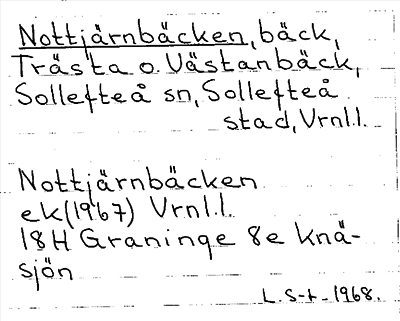 Nottjärnbäcken, bäck,
Trästa o. Västanbäck,
Sollefteå sn, Sollefteå
stad, Vrnl.l.
Nottjärnbäcken
ek (1967) Vrnl.l.
18H Graninge 8e Knä-
sjön
L. S-t- 1968.